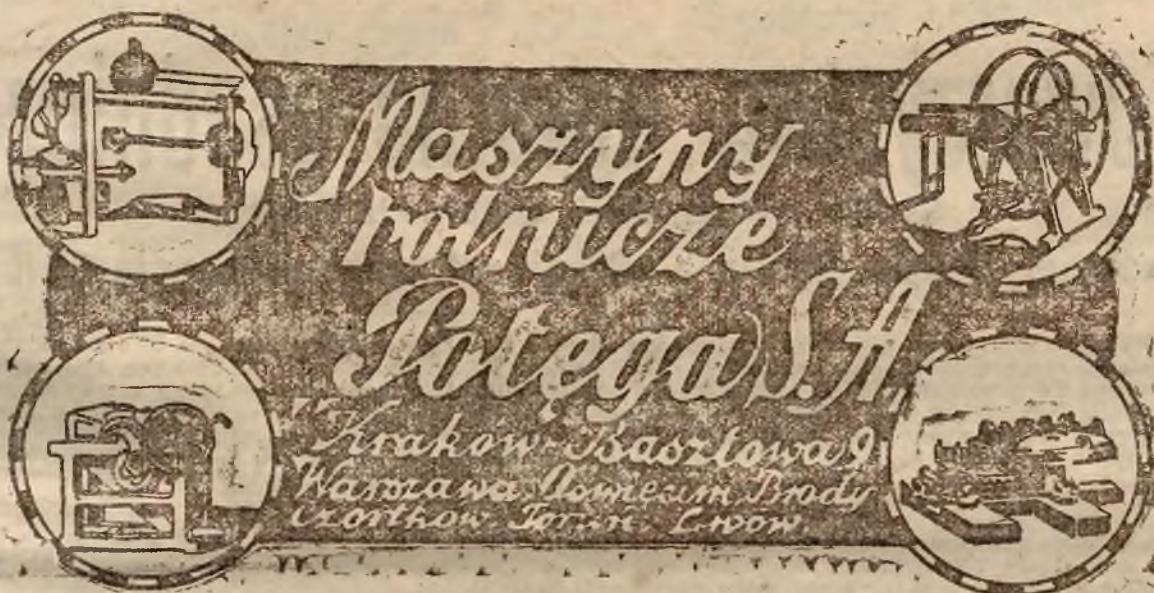 Maszyny
rolnicze
Potęga S.A.
Kraków Basztowa 9
Warszawa, Oświęcim, Brody
Czortków Toruń, Lwów.